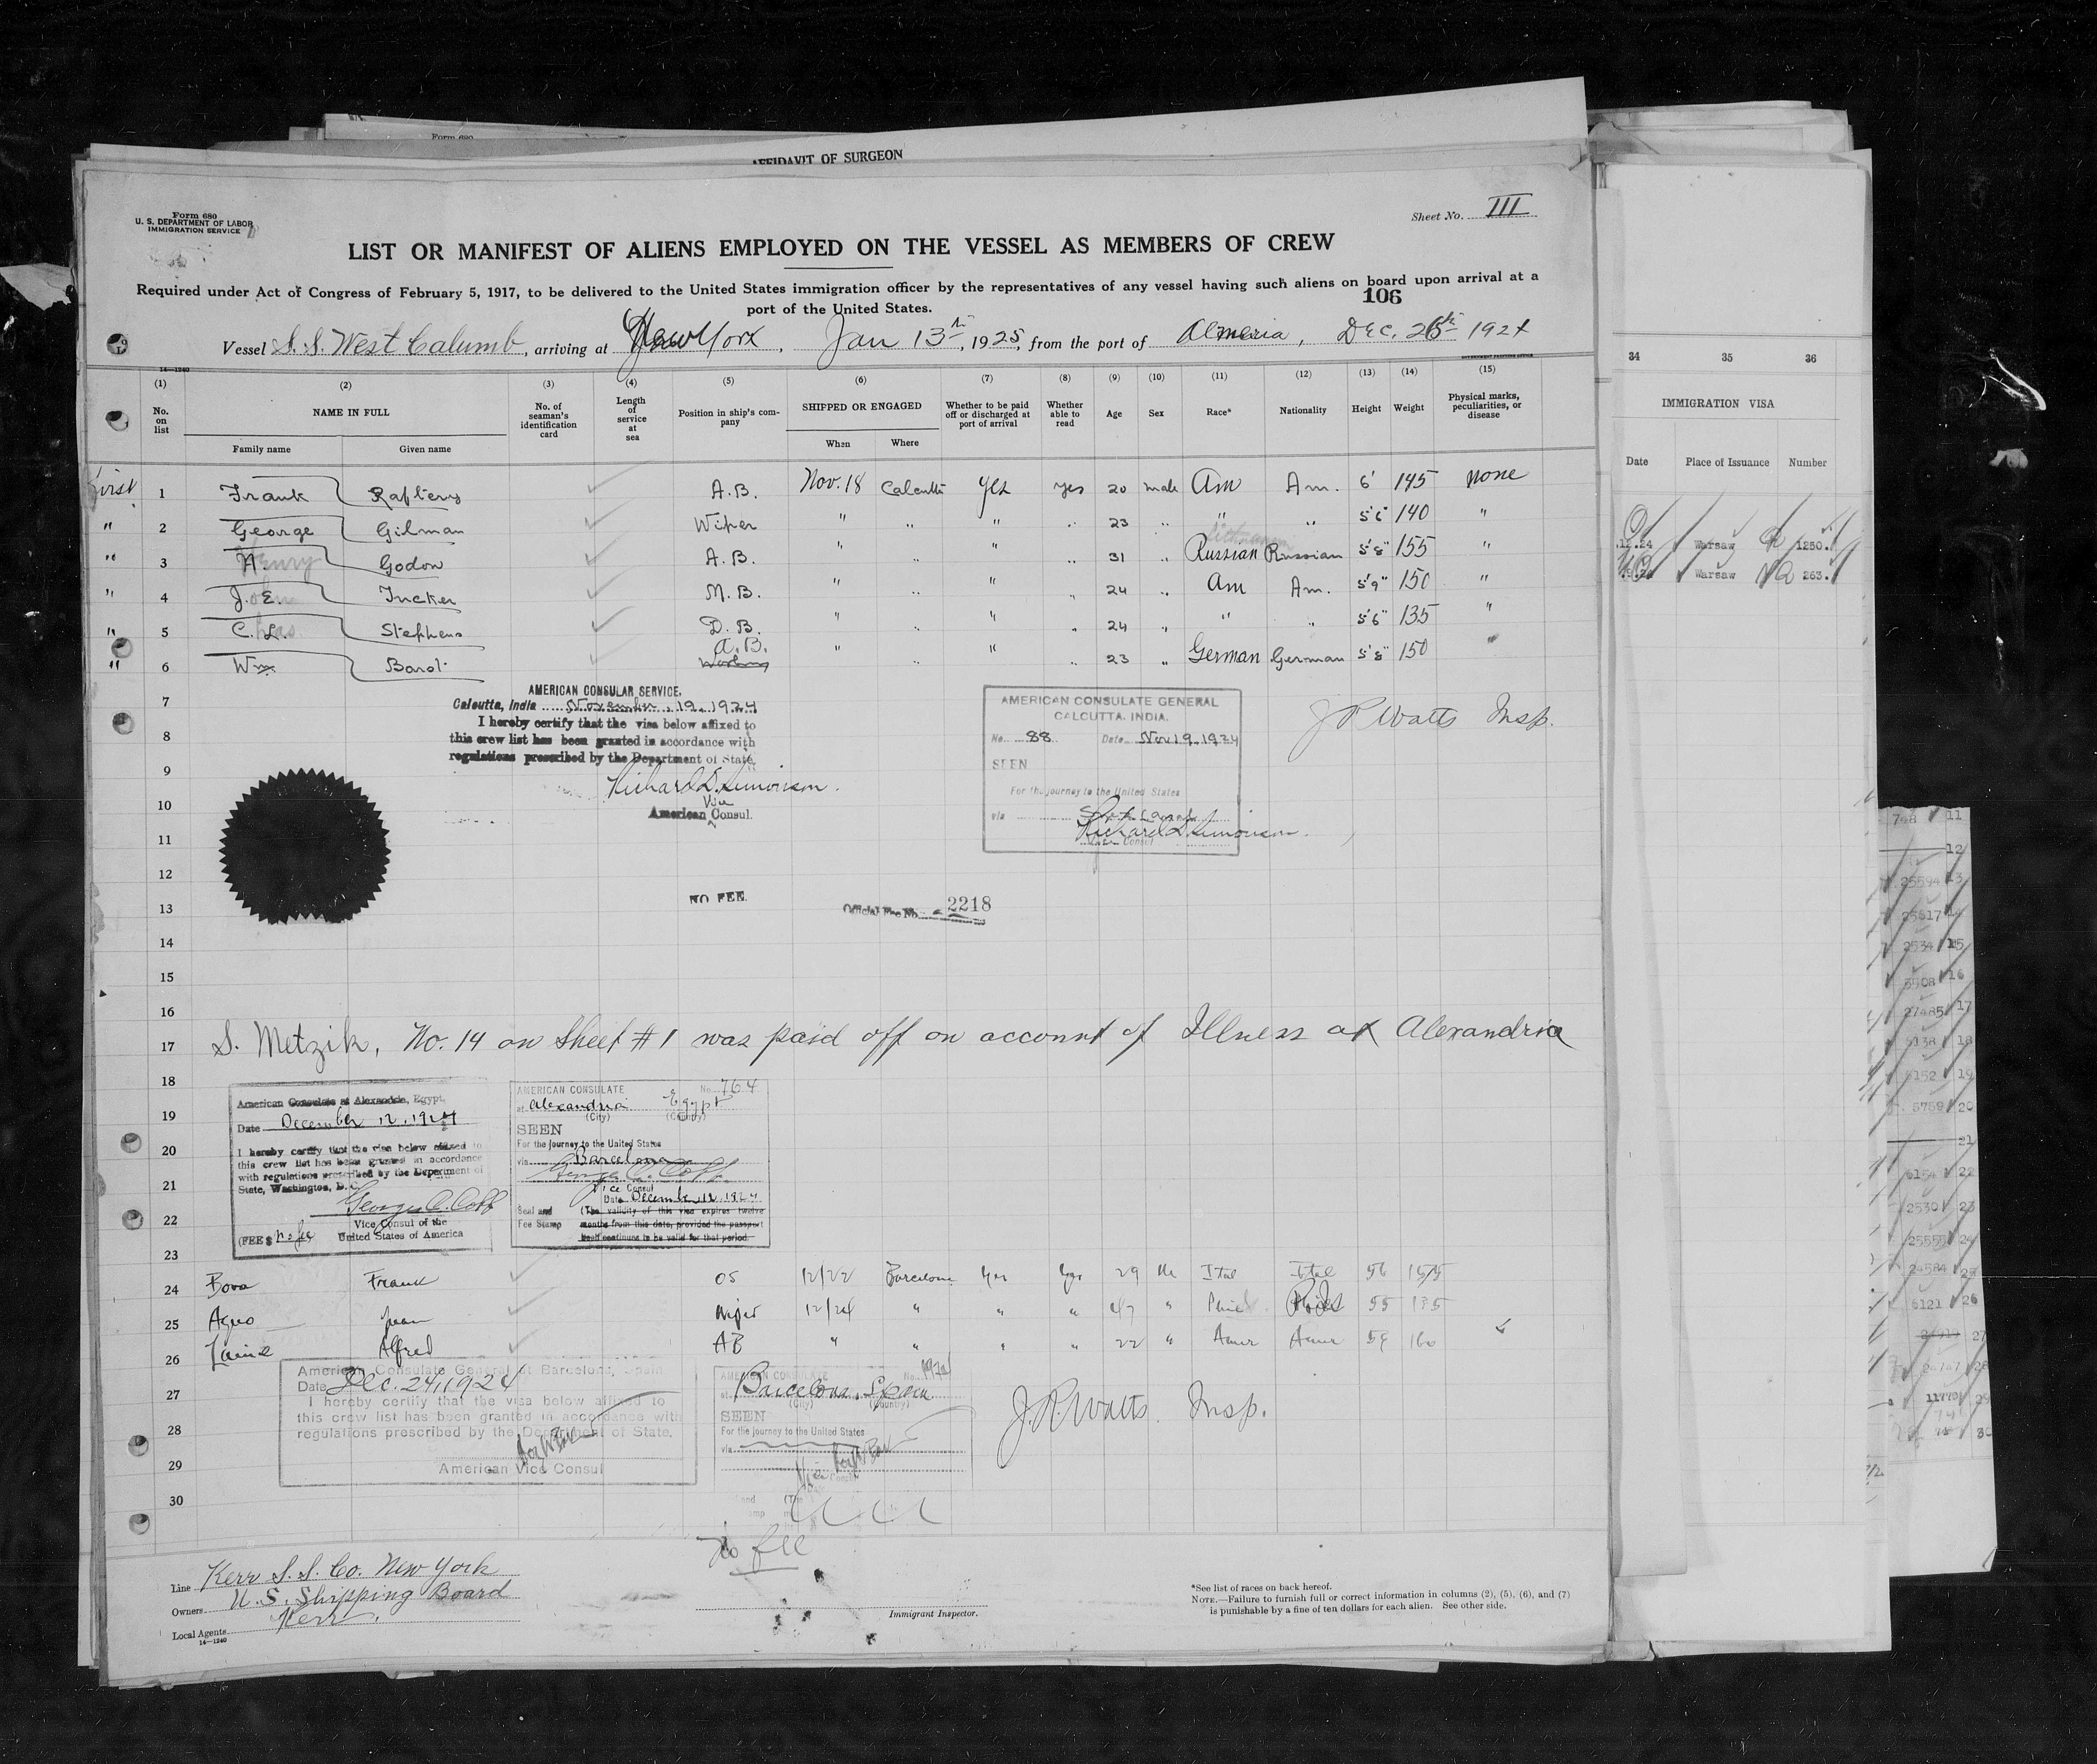 Form 680
AFFIDAVIT OF SURGEON
Form 680
U. S. DEPARTMENT OF LABOR
IMMIGRATION SERVICE
Sheet No. III
LIST OR MANIFEST OF ALIENS EMPLOYED ON THE VESSEL AS MEMBERS OF CREW
Required under Act of Congress of February 5, 1917, to be delivered to the United States immigration officer by the representatives of any vessel having such aliens on board upon arrival at a
port of the United States.
106
Vessel S.S. West Calumb, arriving at New York, Jan 13th, 1925, from the port of Almeria, Dec. 26th 1924
GOVERNMENT PRINTING OFFICE
14—1240
(1) (2) (3) (4) (5) (6) (7) (8) (9) (10) (11) (12) (13) (14) (15)
No. on list NAME IN FULL No. of seaman's identification card Length of service at sea Position in ship's company SHIPPED OR ENGAGED Whether to be paid off or discharged at port of arrival Whether able to read Age Sex Race* Nationality Height Weight Physical marks, peculiarities, or disease
Family name Given name When Where
First 1 Frank Raftery A.B. Nov. 18 Calcutta Yes Yes 20 male Am Am. 6' 145 none
" 2 George Gilman Wiper " " " " 23 " " " 5'6" 140 "
Lithuanian
" 3 Henry Godon A.B. " " " " 31 " Russian Russian 5'8" 155 "
" 4 J. E. Tucker M.B. " " " " 24 " Am Am. 5'9" 150 "
" 5 C. L. Stephens D.B. " " " " 24 " " " 5'6" 135 "
" 6 Wm. Barot A.B. " " " " 23 " German German 5'8" 150 "
7
8
9
10
11
12
13
14
15
16
17
AMERICAN CONSULAR SERVICE,
Calcutta, India November 19, 1924
I hereby certify that the visa below affixed to
this crew list has been granted in accordance with
regulations prescribed by the Department of State.
Richard L. Simonson.
Vice
American Consul.
AMERICAN CONSULATE GENERAL
CALCUTTA, INDIA.
No. 88 Date Nov 19 1924
SEEN
For the journey to the United States
via
Richard L. Simonson.
Vice Consul
J R Watts Insp.
NO FEE.
Official Fee No. 2218
S. Metzik, No. 14 on Sheet #1 was paid off on account of Illness at Alexandria
18
19
20
21
22
23
American Consulate at Alexandria, Egypt,
Date December 12, 1924
I hereby certify that the visa below affixed to
this crew list has been granted in accordance
with regulations prescribed by the Department of
State, Washington, D. C.
George C. Cobb
Vice Consul of the
United States of America
(FEE $ no fee
AMERICAN CONSULATE No. 764
at Alexandria Egypt
(City) (Country)
SEEN
For the journey to the United States
via Barcelona
George C. Cobb
Vice Consul
Date December 12 1924
Seal and Fee Stamp
(The validity of this visa expires twelve
months from this date, provided the passport
itself continues to be valid for that period.
24 Bova Frank OS 12/22 Barcelona Yes Yes 29 M Ital Ital 56 155
25 Agno Juan Wiper 12/24 " " " 47 " 55 135
26 Alfred AB " " " " 22 " Amer Amer 59 160
27
28
29
30
American Consulate General at Barcelona, Spain
Date Dec. 24, 1924
I hereby certify that the visa below affixed to
this crew list has been granted in accordance with
regulations prescribed by the Department of State.
American Vice Consul
AMERICAN CONSULATE No.
at Barcelona, Spain
(City) (Country)
SEEN
For the journey to the United States
via
Vice Consul
J. R. Watts Insp.
No fee
Line Kerr S. S. Co. New York
Owners U. S. Shipping Board
Local Agents Kerr.
14—1240
Immigrant Inspector.
*See list of races on back hereof.
NOTE.—Failure to furnish full or correct information in columns (2), (5), (6), and (7)
is punishable by a fine of ten dollars for each alien. See other side.
34 35 36
IMMIGRATION VISA
Date Place of Issuance Number
Warsaw 1250.
Warsaw 263.
748 11
12
25594 13
25617 14
2534 15
5508 16
27485 17
5138 18
5152 19
5759 20
21
6154 22
2530 23
25555 24
24584 25
6121 26
27
24747 28
11779 29
30